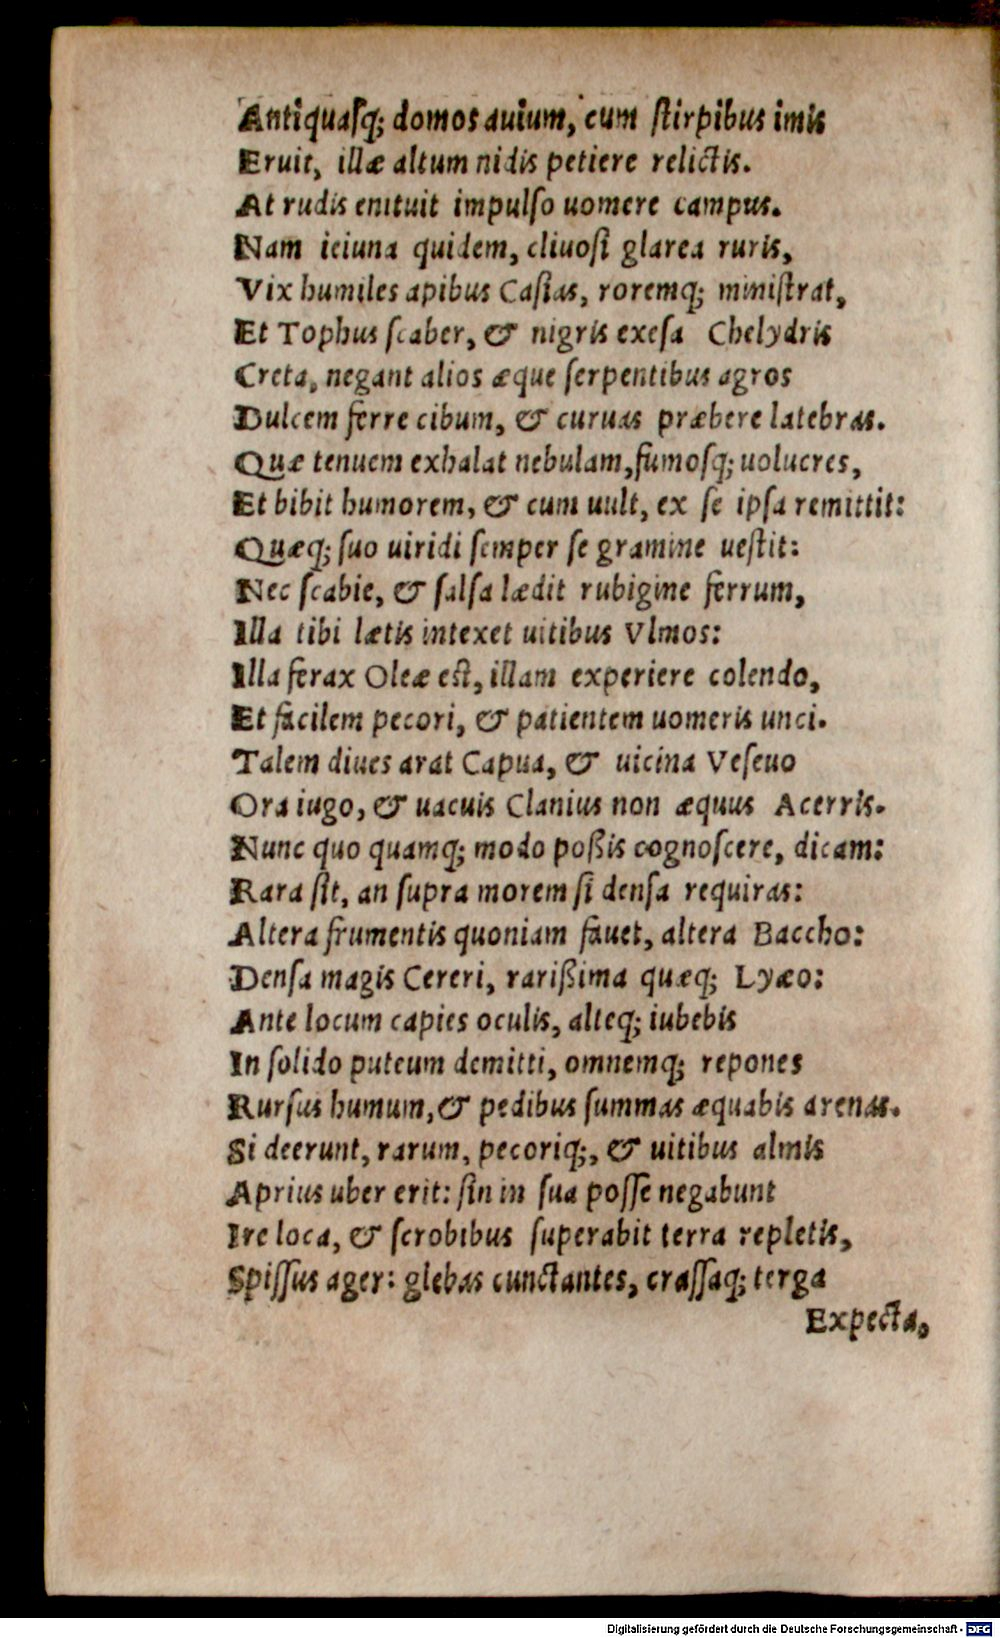 Antiquasq; domos auium, cum stirpibus imis
Eruit, illæ altum nidis petiere relictis.
At rudis enituit impulso uomere campus.
Nam ieiuna quidem, cliuosi glarea ruris,
Vix humiles apibus Casias, roremq; ministrat,
Et Tophus scaber, & nigris exesa Chelydris
Creta, negant alios æque serpentibus agros
Dulcem ferre cibum, & curuas præbere latebras.
Quæ tenuem exhalat nebulam, fumosq; uolucres,
Et bibit humorem, & cum uult, ex se ipsa remittit:
Quæq; suo uiridi semper se gramine uestit:
Nec scabie, & salsa lædit rubigine ferrum,
Illa tibi lætis intexet uitibus Vlmos:
Illa ferax Oleæ est, illam experiere colendo,
Et facilem pecori, & patientem uomeris unci.
Talem diues arat Capua, & uicina Veseuo
Ora iugo, & uacuis Clanius non æquus Acerris.
Nunc quo quamq; modo poßis cognoscere, dicam:
Rara sit, an supra morem si densa requiras:
Altera frumentis quoniam fauet, altera Baccho:
Densa magis Cereri, rarißima quæq; Lyæo:
Ante locum capies oculis, alteq; iubebis
In solido puteum demitti, omnemq; repones
Rursus humum, & pedibus summas æquabis arenas.
Si deerunt, rarum, pecoriq;, & uitibus almis
Aprius uber erit: sin in sua posse negabunt
Ire loca, & scrobibus superabit terra repletis,
Spissus ager: glebas cunctantes, crassaq; terga
Expecta,
Digitalisierung gefördert durch die Deutsche Forschungsgemeinschaft - DFG